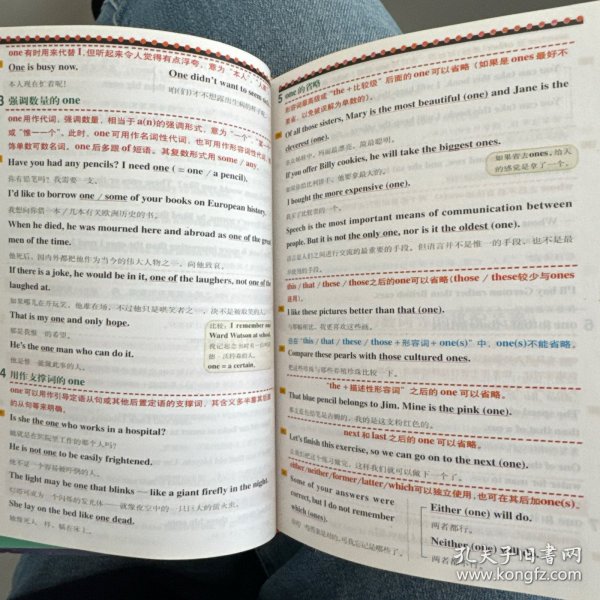 one 有时用来代替 I, 但听起来令人觉得有点浮夸, 意为“本人”
One is busy now.
本人现在忙着呢!
One didn't want to seem
3 强调数量的 one
one用作代词, 强调数量, 相当于 a(n)的强调形式, 意为“一个”
或“惟一一个”。此时, one可用作名词性代词, 也可用作形容词性代词,
饰单数可数名词。one后多跟of短语。其复数形式用 some / any.
Have you had any pencils? I need one ( = one / a pencil).
你有铅笔吗? 我需要一支。
I'd like to borrow one / some of your books on European history.
我想向你借一本 / 几本有关欧洲历史的书。
When he died, he was mourned here and abroad as one of the great
men of the time.
他死后, 国内外都把他作为当今的伟大人物之一, 向他致哀。
If there is a joke, he would be in it, one of the laughers, not one of the
laughed at.
如果哪儿在开玩笑, 他准在场, 不过他只是哄笑者之一, 决不是被取笑的人。
That is my one and only hope.
那是我惟一的希望。
He's the one man who can do it.
他是惟一能做此事的人。
比较: I remember one
Ward Watson at school.
one = a certain.
4 用作支撑词的 one
one 可以用作引导定语从句或其他后置定语的支撑词, 其含义多半靠其后
的从句等来明确。
Is she the one who works in a hospital?
她就是在医院里工作的那个人吗?
He is not one to be easily frightened.
他不是一个容易被吓倒的人。
The light may be one that blinks — like a giant firefly in the night.
She lay on the bed like one dead.
她像死人一样, 躺在床上。
5 one 的省略
形容词最高级或“the + 比较级”后面的 one 可以省略 (如果是 ones 最好不
要省, 以免被误解为单数的)。
Of all those sisters, Mary is the most beautiful (one) and Jane is the
cleverest (one).
在众姊妹中, 玛丽最漂亮, 简最聪明。
If you offer Billy cookies, he will take the biggest ones.
如果你给比利饼干, 他要拿最大的。
如果省去ones, 给人
的感觉是拿了一个。
I bought the more expensive (one).
我买了比较贵的一个。
Speech is the most important means of communication between
people. But it is not the only one, nor is it the oldest (one).
语言是人们之间进行交流的最重要的手段, 但语言并不是惟一的手段, 也不是最
早使用的手段。
this / that / these / those 之后的one可以省略 (those / these较少与ones
连用)。
I like these pictures better than that (one).
与那幅相比, 我更喜欢这些画。
但在“this / that / these / those + 形容词 + one(s)”中, one(s)不能省略。
Compare these pearls with those cultured ones.
把这些珍珠与那些养殖珍珠比较一下。
“the + 描述性形容词”之后的 one 可以省略。
That blue pencil belongs to Jim. Mine is the pink (one).
那支蓝色铅笔是吉姆的。我的是这支粉红色的。
next 和 last 之后的 one 可以省略。
Let's finish this exercise, so we can go on to the next (one).
让我们把这个练习做完, 这样我们就可以做下一个了。
either/neither/former/latter/which可以独立使用, 也可在其后加one(s)。
Some of your answers were
correct, but I do not remember
which (ones).
你的一些答案是对的, 可我忘记是哪些了。
Either (one) will do.
两者都行。
Neither (one) will do.
两者都
孔夫子旧书网
www.kongfz.com